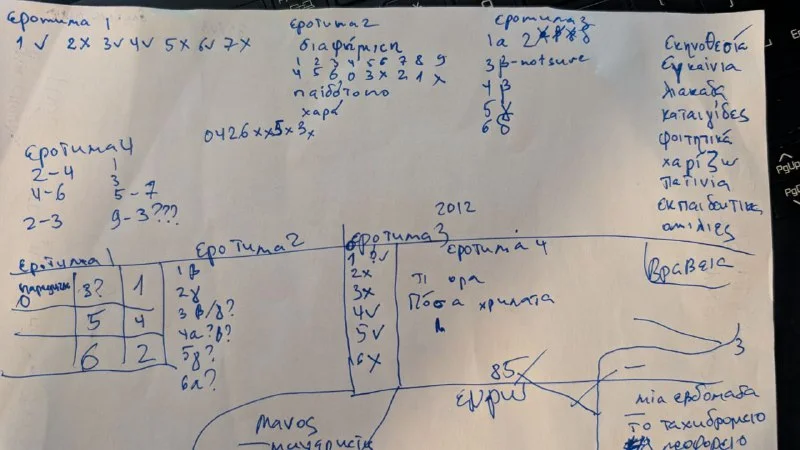 εροτιμα 1
1 ✓ 2x 3✓ 4✓ 5x 6✓ 7x
εροτιμα 2
διαφήμιση
1 2 3 4 5 6 7 8 9
4 5 6 0 3 x 2 1 x
παιδότοπο
χαρά
0426xx5x3x
εροτιμα 3
1α 2
3β-not sure
4β
5γ
6δ
σκηνοθεσία
εγκαίνια
λιακάδα
καταιγίδες
φοιτητικά
χαρίζω
πατίνια
εκπαιδευτικες
ομιλίες
εροτιμα 4
2-4 1
4-6 3
5-7
2-3 9-3???
2012
εροτιμα 1
0 3? 1
5 4
6 2
εροτιμα 2
1β
2γ
3 β/γ?
4α?β?
5γ?
6α?
εροτιμα 3
1?✓
2x
3x
4✓
5✓
6x
εροτιμα 4
Τι ορα
Πόσα χριματα
βραβεία
3
85
εμριν
μανος
μία εβδομαδα
το ταχιδρομειο
λεοφορειο